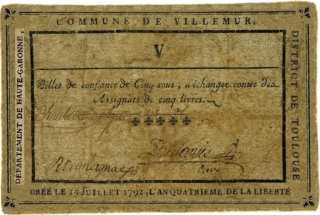 COMMUNE DE VILLEMUR.
DEPARTEMENT DE HAUTE-GARONNE,
V
Billes de confiance de Cinq sous, a échanger contre des
Assignats de cinq livres.
DISTRICT DE TOULOUSE
CRÉÉ LE 15 JUILLET 1792, L'AN QUATRIEME DE LA LIBERTÉ